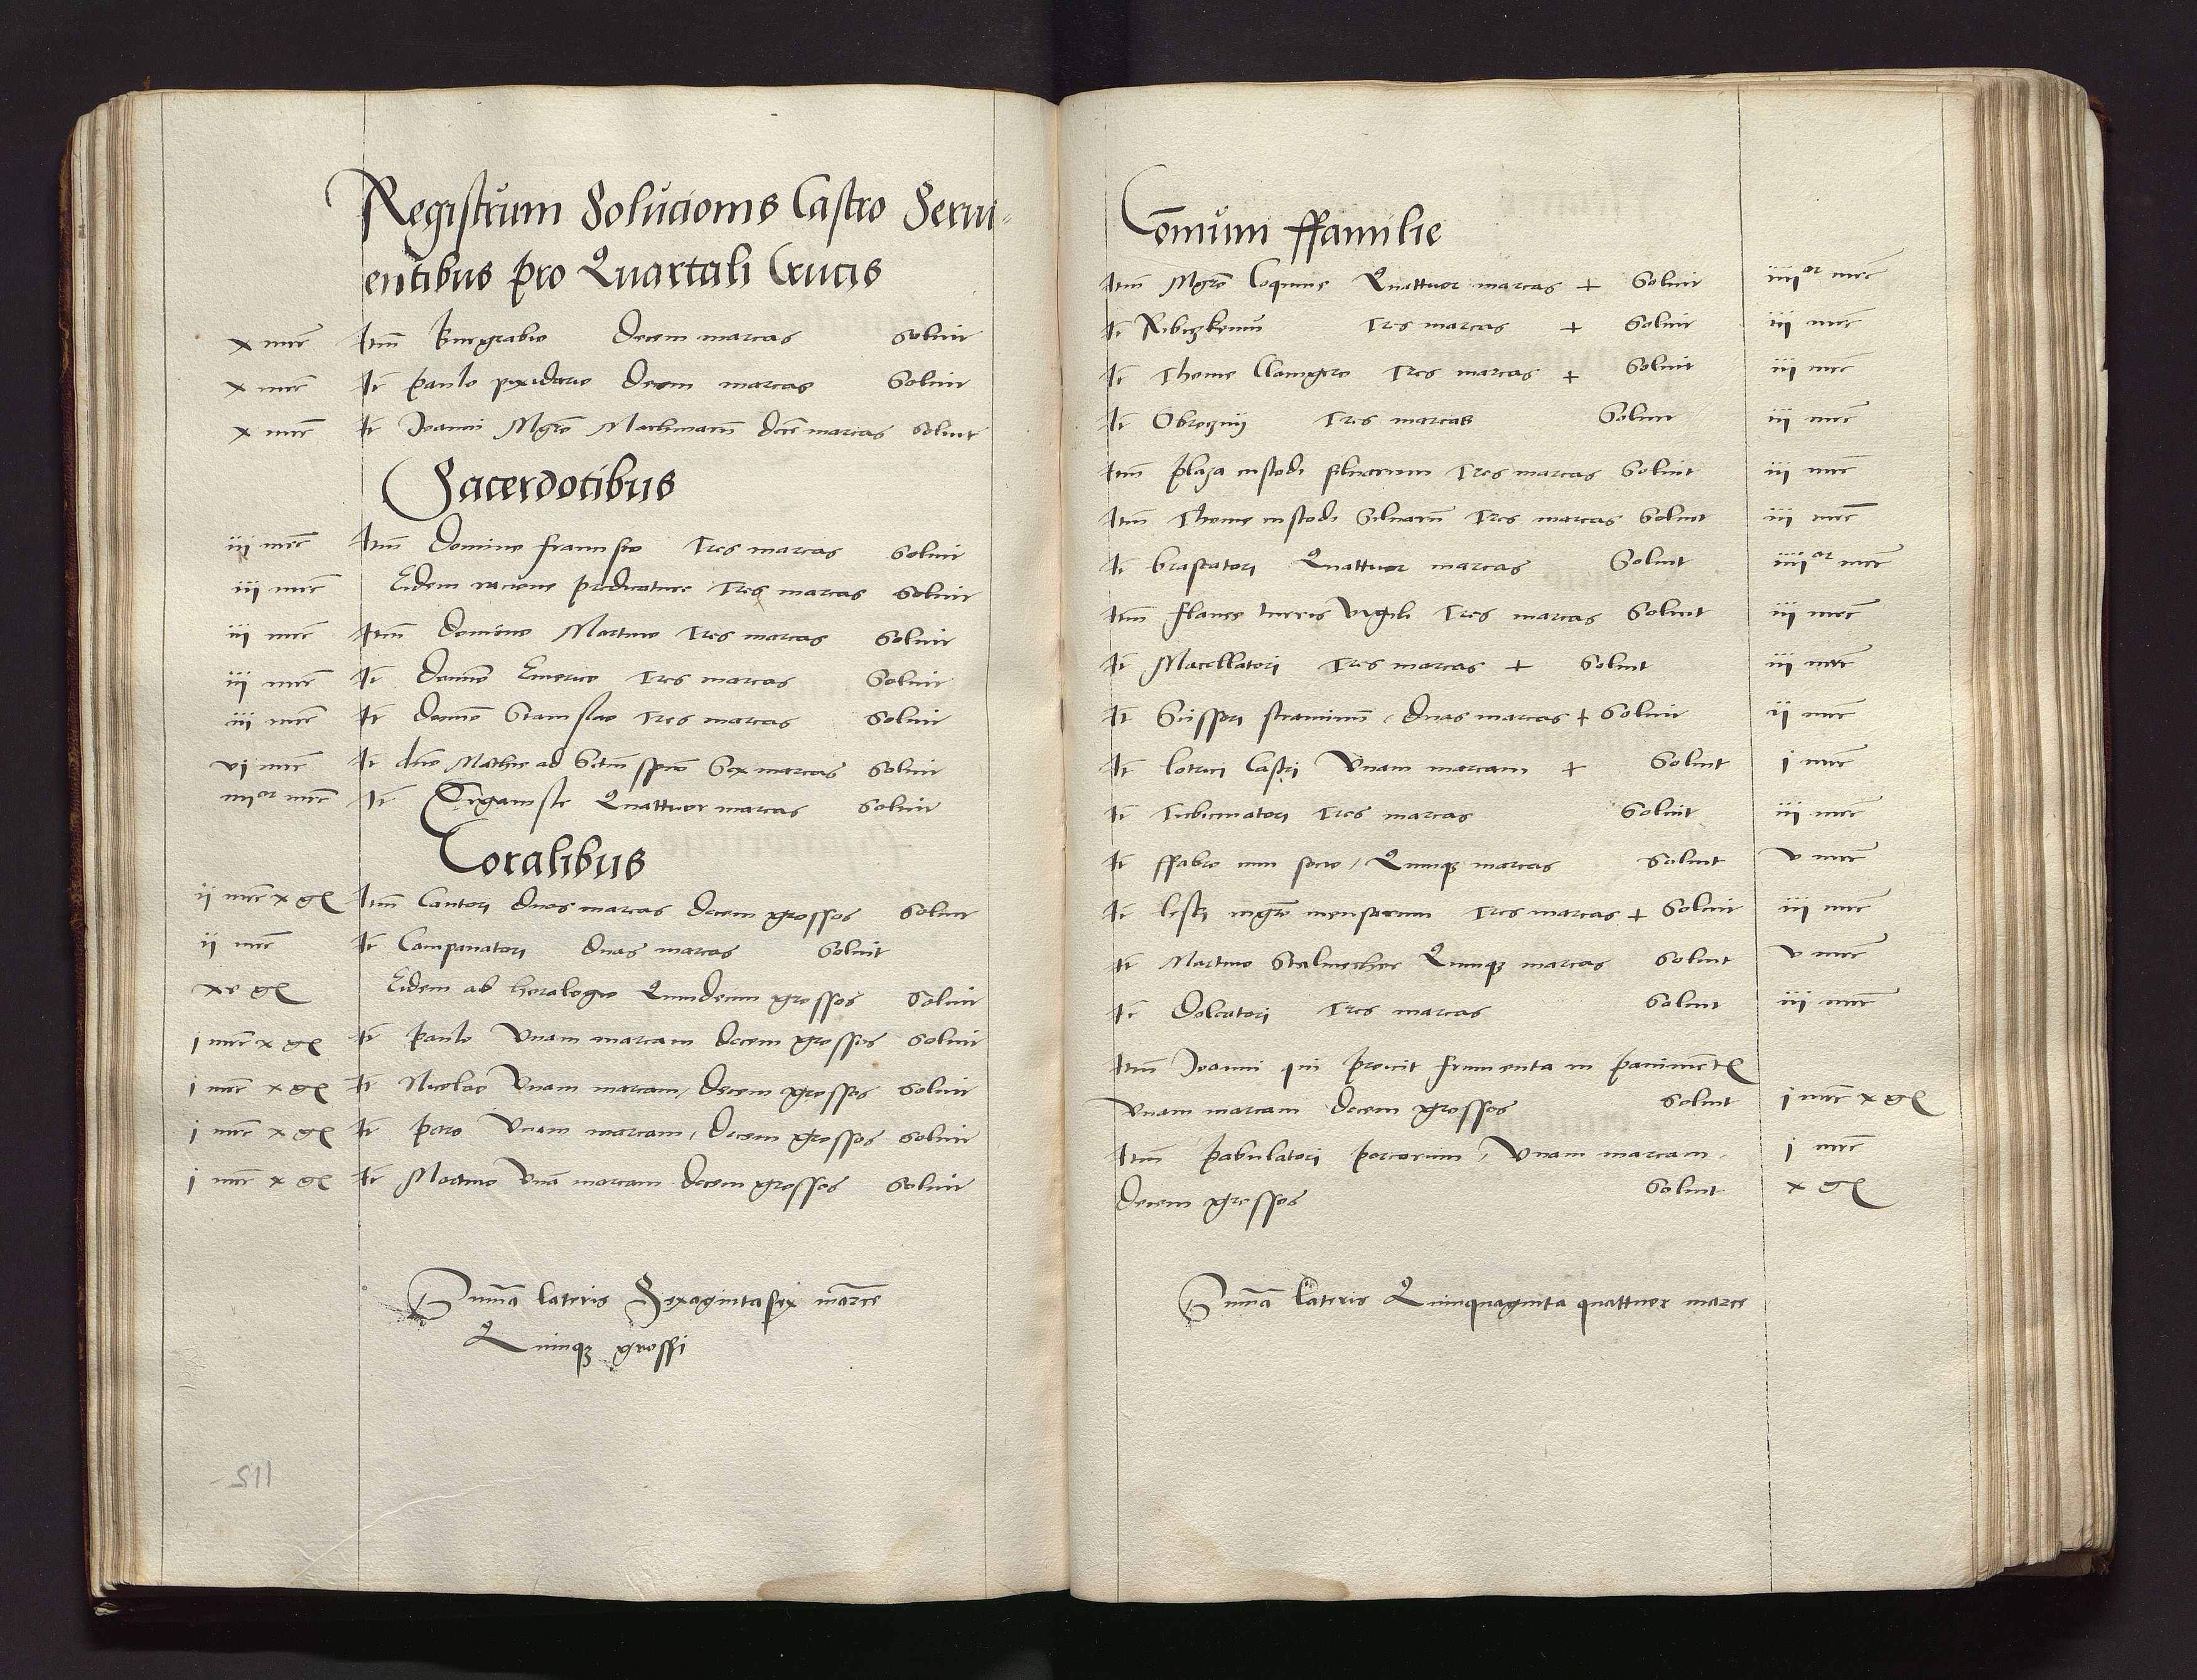 Registrum Solucionis Castro Servi-
entibus pro Quartali Crucis
x mrc Itm Burgrabio Decem marcas Solvit
x mrc It paulo pixidario Decem marcas Solvit
x mrc It Joanni Mgro Machinarū decē marcas Solvit
Sacerdotibus
iii mrc Itm Domino francisco Tres marcas Solvit
iii mrc Eidem racione predicature Tres marcas Solvit
iii mrc Itm Domino Martino Tres marcas Solvit
iii mrc It Domino Emerico Tres marcas Solvit
iii mrc It Domino Stanislao Tres marcas Solvit
vi mrc It dno Mathie ad Sctm spm Sex marcas Solvit
iiiior mrc It Organiste Quattuor marcas Solvit
Coralibus
ii mrc x gr Itm Cantori Duas marcas Decem grossos Solvit
ii mrc It Campanatori Duas marcas Solvit
xv gr Eidem ab horalogio Quindecim grossos Solvit
i mrc x gr It paulo Unam marcam Decem grossos Solvit
i mrc x gr It Nicolao Unam marcam, Decem grossos Solvit
i mrc x gr It Unam marcam, Decem grossos Solvit
i mrc x gr It Martino Unā marcam Decem grossos Solvit
Summa lateris Sexagintasex marce
Quinqz grossi
112
Comuni ffamilie
Itm Mgro Coquine Quattuor marcas + Solvit iiiior mrc
It Tres marcas + Solvit iii mrc
It Thome Clavigero Tres marcas + Solvit iii mrc
It Tres marcas Solvit iii mrc
Itm plaza custodi silvarum Tres marcas Solvit iii mrc
Itm Thome custodi Silvarū Tres marcas Solvit iii mrc
It braseatori Quattuor marcas Solvit iiiior mrc
Itm turris vigili Tres marcas Solvit iii mrc
It Macellatori Tres marcas + Solvit iii mrc
It Scissori straminū, Duas marcas + Solvit ii mrc
It lotrici Castri Unam marcam + Solvit i mrc
It Tubicinatori Tres marcas Solvit iii mrc
It ffabro cum socio, Quinqz marcas Solvit v mrc
It mgro mensarum Tres marcas + Solvit iii mrc
It Martino Quinqz marcas Solvit v mrc
It Doleatori Tres marcas Solvit iii mrc
Itm Joanni qui frumenta in
Unam marcam Decem grossos Solvit i mrc x gr
Itm pabulatori porcorum, Unam marcam i mrc
Decem grossos Solvit x gr
Summa lateris Quinquaginta quattuor marce